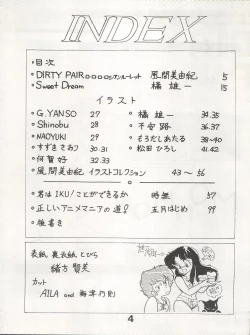 INDEX
◦目次
◦DIRTY PAIR ロロロロシアンルーレット 風間美由紀 5
◦Sweet Dream 橘 雄一 15
イラスト
◦G.YANSO 27 ◦橘 雄一 34.35
◦Shinobu 28 ◦不安路 36.37
◦NAOYUKI 29 ◦もろだしあたる 38~40
◦すずき さわお 30.31 ◦松田 ひろし 41.42
◦何賀好 32.33
◦風間美由紀 イラストコレクション 43~56
◦君は IKU! ことができるか 時無 57
◦正しいアニメマニアの道 五月はじめ 99
◦後書き
表紙, 裏表紙, とびら
緒方 賢美
カット
AILA and
4